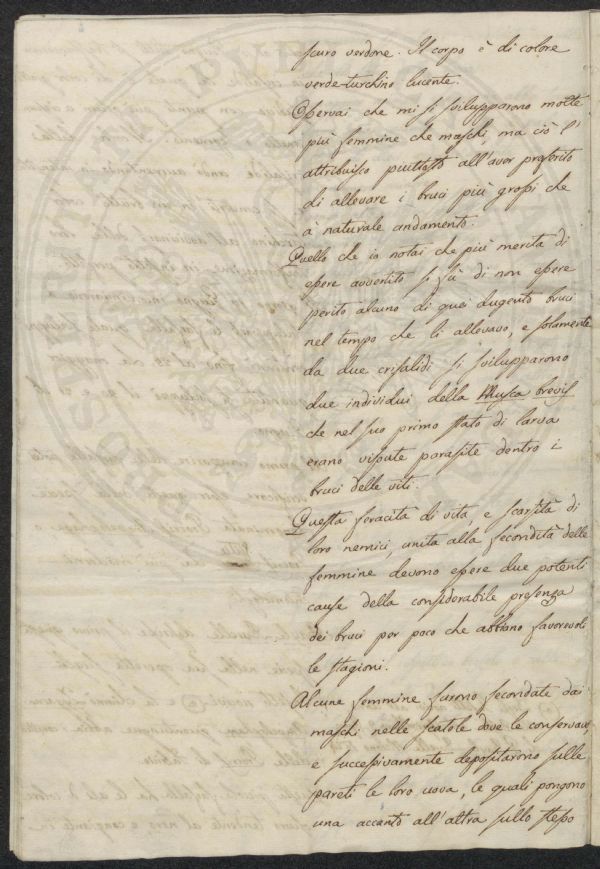 scuro verdone. Il corpo è di colore
verde-turchino lucente.
Osservai che mi si svilupparono molte
più femmine che maschi, ma ciò l'
attribuisco piuttosto all'aver preferito
di allevare i bruci più grossi che
à naturale andamento.
Quello che io notai che più merita di
essere avvertito si fù di non essere
perito alcuno di quei dugento bruci
nel tempo che li allevavo, e solamente
da due crisalidi si svilupparono
due individui della Musca brevis
che nel suo primo stato di larva
erano vissute parasite dentro i
bruci delle viti.
Questa feracità di vita, e scarsità di
loro nemici, unita alla fecondità delle
femmine devono essere due potenti
cause della considerabile presenza
dei bruci per poco che abbiano favorevoli
le stagioni.
Alcune femmine furono fecondate dai
maschi nelle scatole dove le conservavo,
e successivamente depositarono sulle
pareti le loro uova, le quali pongono
una accanto all'altra sullo stesso